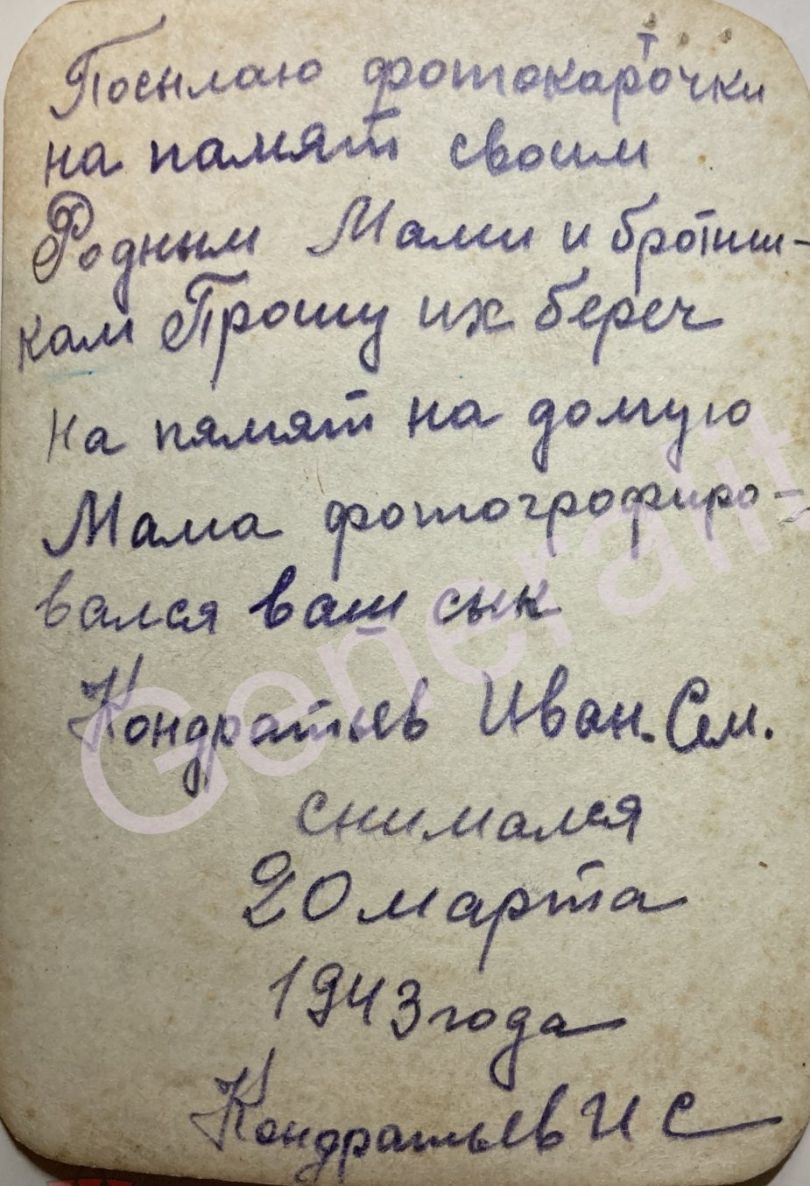 Посылаю фотокарточки
на памят своим
Родным Мами и братиш-
кам Прошу их береч
на пямят на долгую
Мама фотографиро-
вался ваш сын
Кондратьев Иван. Сем.
снимался
20 марта
1943 года
Кондратьев И С
Generalit